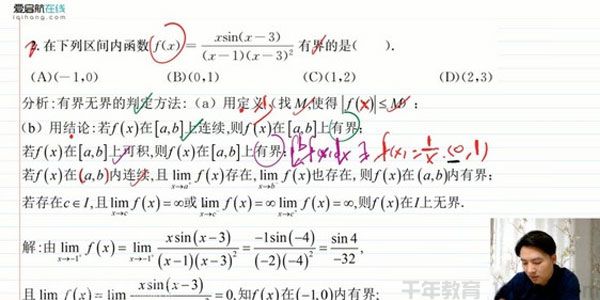 爱启航在线
iqihang.com
2.在下列区间内函数 f(x) = xsin(x−3)/((x−1)(x−3)²) 有界的是( ).
(A)(−1,0) (B)(0,1) (C)(1,2) (D)(2,3)
分析:有界无界的判定方法:(a)用定义(找M,使得|f(x)|≤M);
(b)用结论:若f(x)在[a,b]上连续,则f(x)在[a,b]上有界;
若f(x)在[a,b]上可积,则f(x)在[a,b]上有界; f(x)=1/x (0,1)
若f(x)在(a,b)内连续,且lim x→a⁺ f(x)存在,lim x→b⁻ f(x)也存在,则f(x)在(a,b)内有界;
若存在c∈I,且lim x→c f(x)=∞或lim x→c⁻ f(x)=∞ lim x→c⁺ f(x)=∞,则f(x)在I上无界.
解:由lim x→−1⁺ f(x)=lim x→−1⁺ xsin(x−3)/((x−1)(x−3)²)=−1sin(−4)/((−2)(−4)²)=sin4/−32,
且lim f(x)=lim xsin(x−3)/ =0,知f(x)在(−1,0)内有界;
千年教育